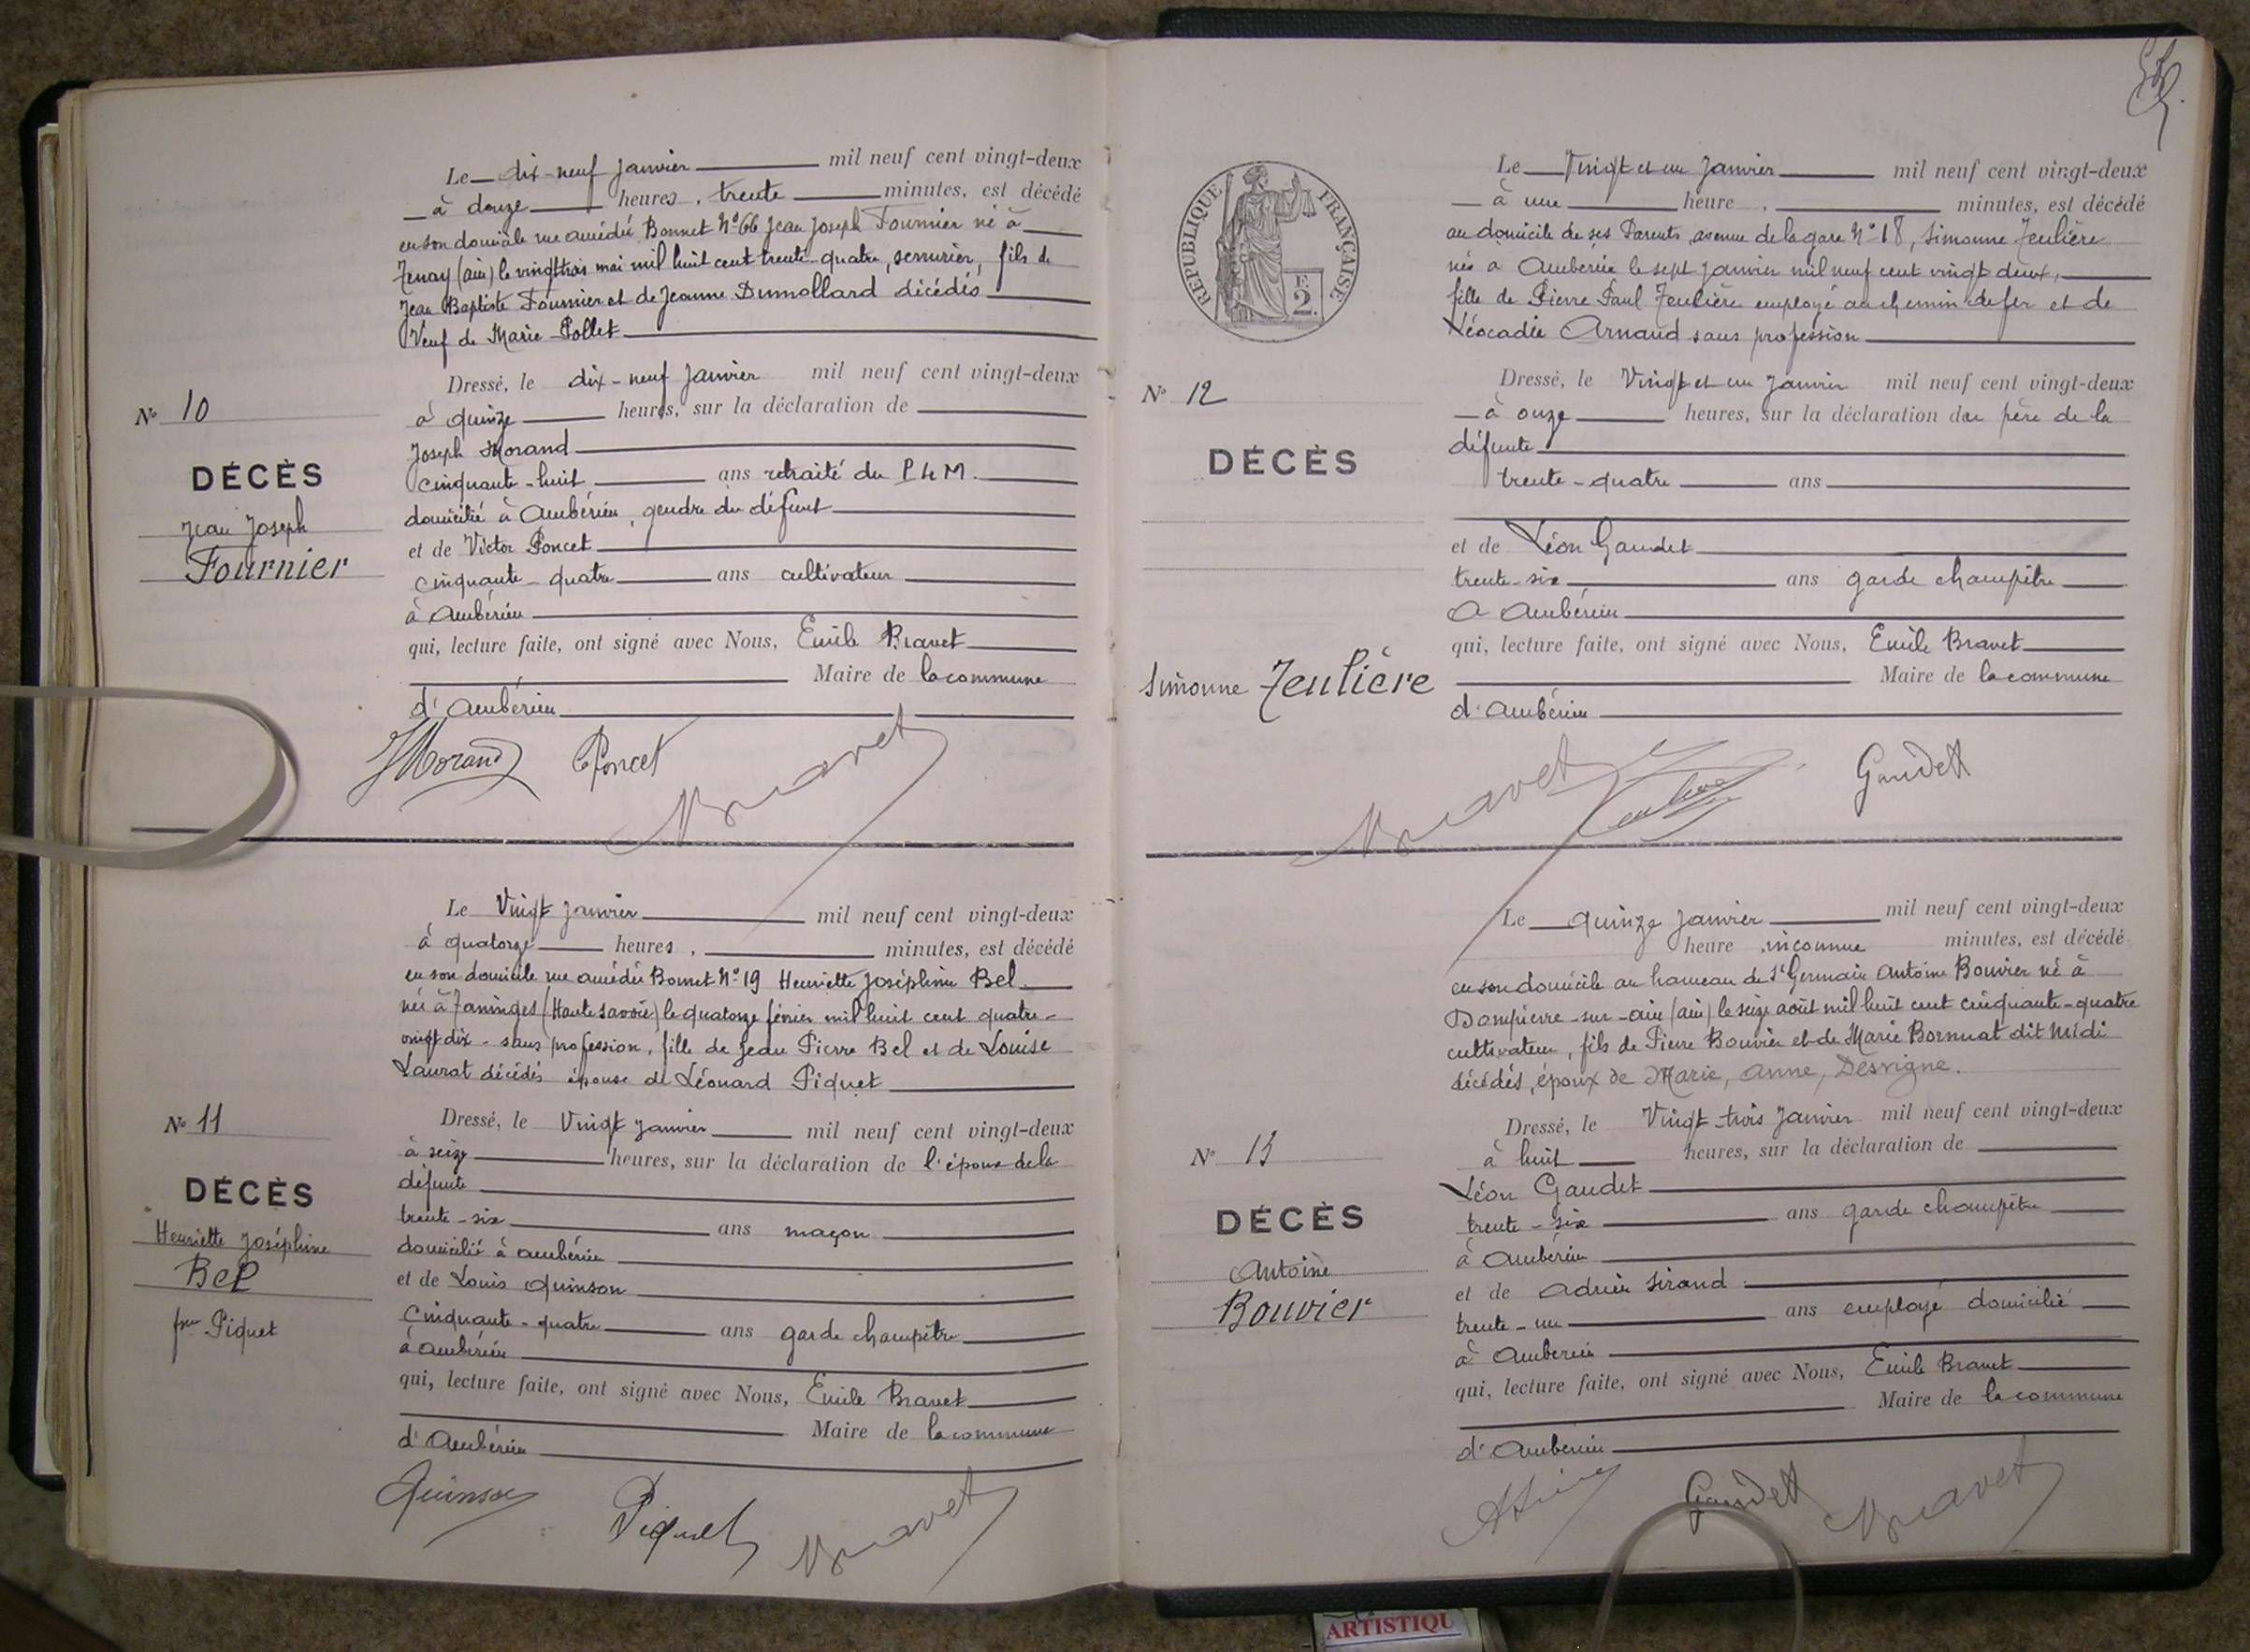 Le dix-neuf janvier mil neuf cent vingt-deux
à douze heures, trente minutes, est décédé
en son domicile rue amédée Bonnet N° 66 Jean Joseph Fournier né à
Tenay (ain) le vingt trois mai mil huit cent trente-quatre, serrurier, fils de
Jean Baptiste Fournier et de Jeanne Dumollard décédés
Veuf de Marie Pollet
Dressé, le dix-neuf janvier mil neuf cent vingt-deux
à quinze heures, sur la déclaration de
Joseph Morand
cinquante-huit ans retraité du P L M.
domicilié à Ambérieu, gendre du défunt
et de Victor Poncet
cinquante-quatre ans cultivateur
à ambérieu
qui, lecture faite, ont signé avec Nous, Emile Bravet
Maire de la commune
d'ambérieu
N° 10
DÉCÈS
Jean Joseph
Fournier
JMorand Poncet Bravet
Le Vingt janvier mil neuf cent vingt-deux
à quatorze heures, minutes, est décédé
en son domicile rue amédée Bonnet N° 19 Henriette Joséphine Bel
née à Taninges (Haute savoie) le quatorze février mil huit cent quatre-
vingt dix - sans profession, fille de Jean Pierre Bel et de Louise
Laurat décédés épouse de Léonard Piquet
Dressé, le Vingt janvier mil neuf cent vingt-deux
à seize heures, sur la déclaration de l'époux de la
défunte
trente-six ans maçon
domicilié à ambérieu
et de Louis Quinson
cinquante-quatre ans garde champêtre
à ambérieu
qui, lecture faite, ont signé avec Nous, Emile Bravet
Maire de la commune
d'Ambérieu
N° 11
DÉCÈS
Henriette Joséphine
Bel
fme Piquet
Quinson Piquet Bravet
RÉPUBLIQUE FRANÇAISE
2 F.
Le Vingt et un janvier mil neuf cent vingt-deux
à une heure, minutes, est décédé
au domicile de ses Parents, avenue de la gare N° 18, Simonne Teulière
née à Ambérieu le sept janvier mil neuf cent vingt deux,
fille de Pierre Paul Teulière employé au chemin de fer et de
Léocadie Arnaud sans profession
Dressé, le Vingt et un janvier mil neuf cent vingt-deux
à onze heures, sur la déclaration du père de la
défunte
trente-quatre ans
et de Léon Gaudet
trente-six ans garde champêtre
a ambérieu
qui, lecture faite, ont signé avec Nous, Emile Bravet
Maire de la commune
d'ambérieu
N° 12
DÉCÈS
Simonne Teulière
Bravet Teulière Gaudet
Le quinze janvier mil neuf cent vingt-deux
heure, inconnue minutes, est décédé
en son domicile au hameau de St Germain Antoine Bouvier né à
Dompierre-sur-ain (ain) le seize août mil huit cent cinquante-quatre
cultivateur, fils de Pierre Bouvier et de Marie Bornuat dit Midi
décédés, époux de Marie, anne, Desvigne.
Dressé, le Vingt-trois janvier mil neuf cent vingt-deux
à huit heures, sur la déclaration de
Léon Gaudet
trente-six ans garde champêtre
à ambérieu
et de Adrien Sirand
trente-un ans employé domicilié
à Ambérieu
qui, lecture faite, ont signé avec Nous, Emile Bravet
Maire de la commune
d'Ambérieu
N° 13
DÉCÈS
Antoine
Bouvier
Gaudet Bravet
ARTISTIQU